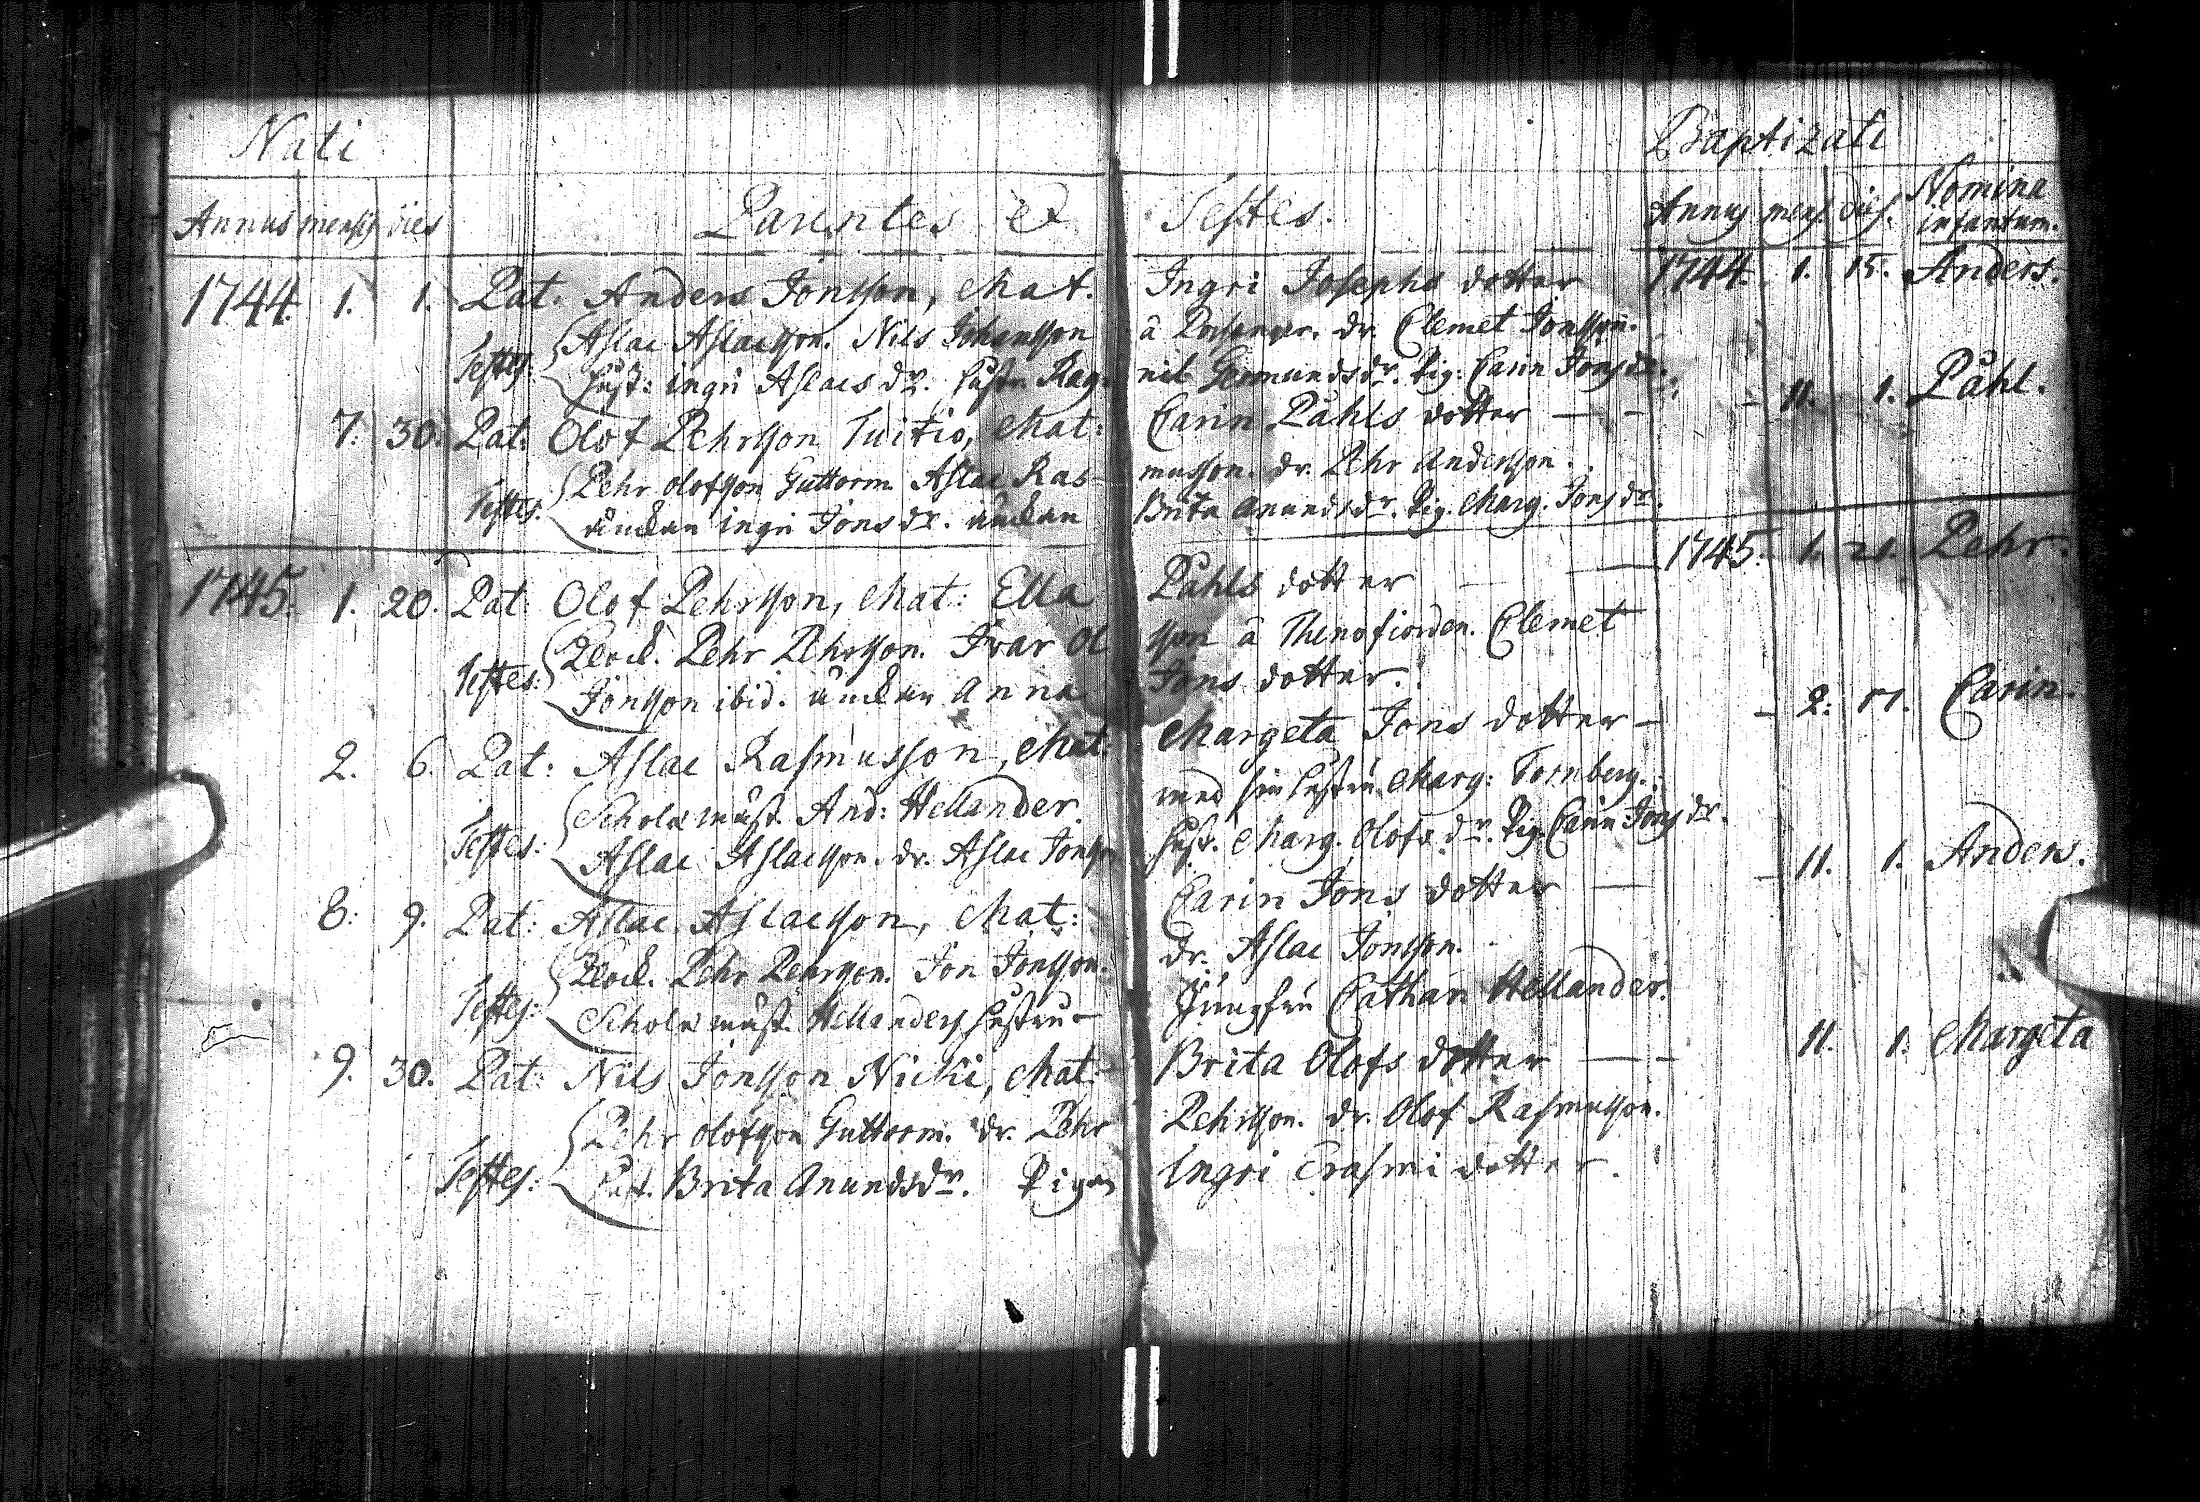 Nati Baptizati
Annus mensis dies Parentes et Testes. Annus mens. dies. Nomina infantum.
1744. 1. 1. Pat. Anders Jonsson, Mat. Ingri Josephs dotter 1744. 1. 15. Anders.
Testes: Aslac Aslacsson. Nils Johansson â dr. Clemet Jonsson.
Hust: ingri Aslacs dr. Hustr. Rag- nil Germundsdr. Pig. Carin Jons dr.
7. 30. Pat: Olof Pehrsson Tuitio, Mat: Carin Påhls dotter — — - 11. 1. Påhl.
Testes: Pehr Olofsson Guttorm. Aslac Ras- musson. dr. Pehr Andersson.
änckan ingri Jons dr. änckan Brita Anundsdr. Pig. Marg. Jons dr.
1745. 1. 20. Pat: Olof Pehrsson, Mat: Ella Påhls dotter — — 1745. 1. 21. Pehr.
Testes: Klock. Pehr Pehrsson. Ivar Ol sson â Thenofiorden. Clemet
Jonsson ibid. änckan Anna Jons dotter.
2. 6. Pat: Aslac Rasmusson, Mat: Margeta Jons dotter — - 2. 17. Carin.
Testes: Scholæmäst. And: Hellander. med sin hustru Marg: Tornberg.
Aslac Aslacsson. dr. Aslac Jonsson Hustr. Marg. Olofs dr. Pig. Carin Jons dr.
8. 9. Pat: Aslac Aslacsson, Mat: Carin Jons dotter — - 11. 1. Anders.
Testes: Klock. Pehr Pehrsson. Jon Jonsson. dr. Aslac Jonsson.
Scholæmäst. Hellanders hustru - Jungfru Cathar. Hellander.
9. 30. Pat: Nils Jonsson Nicki, Mat: Brita Olofs dotter — - 11. 1. Margeta
Testes: Pehr Olofsson Guttorm. dr. Pehr Pehrsson. dr. Olof Rasmusson.
Hust. Brita Anundsdr. Pigan Ingri Erasmi dotter.